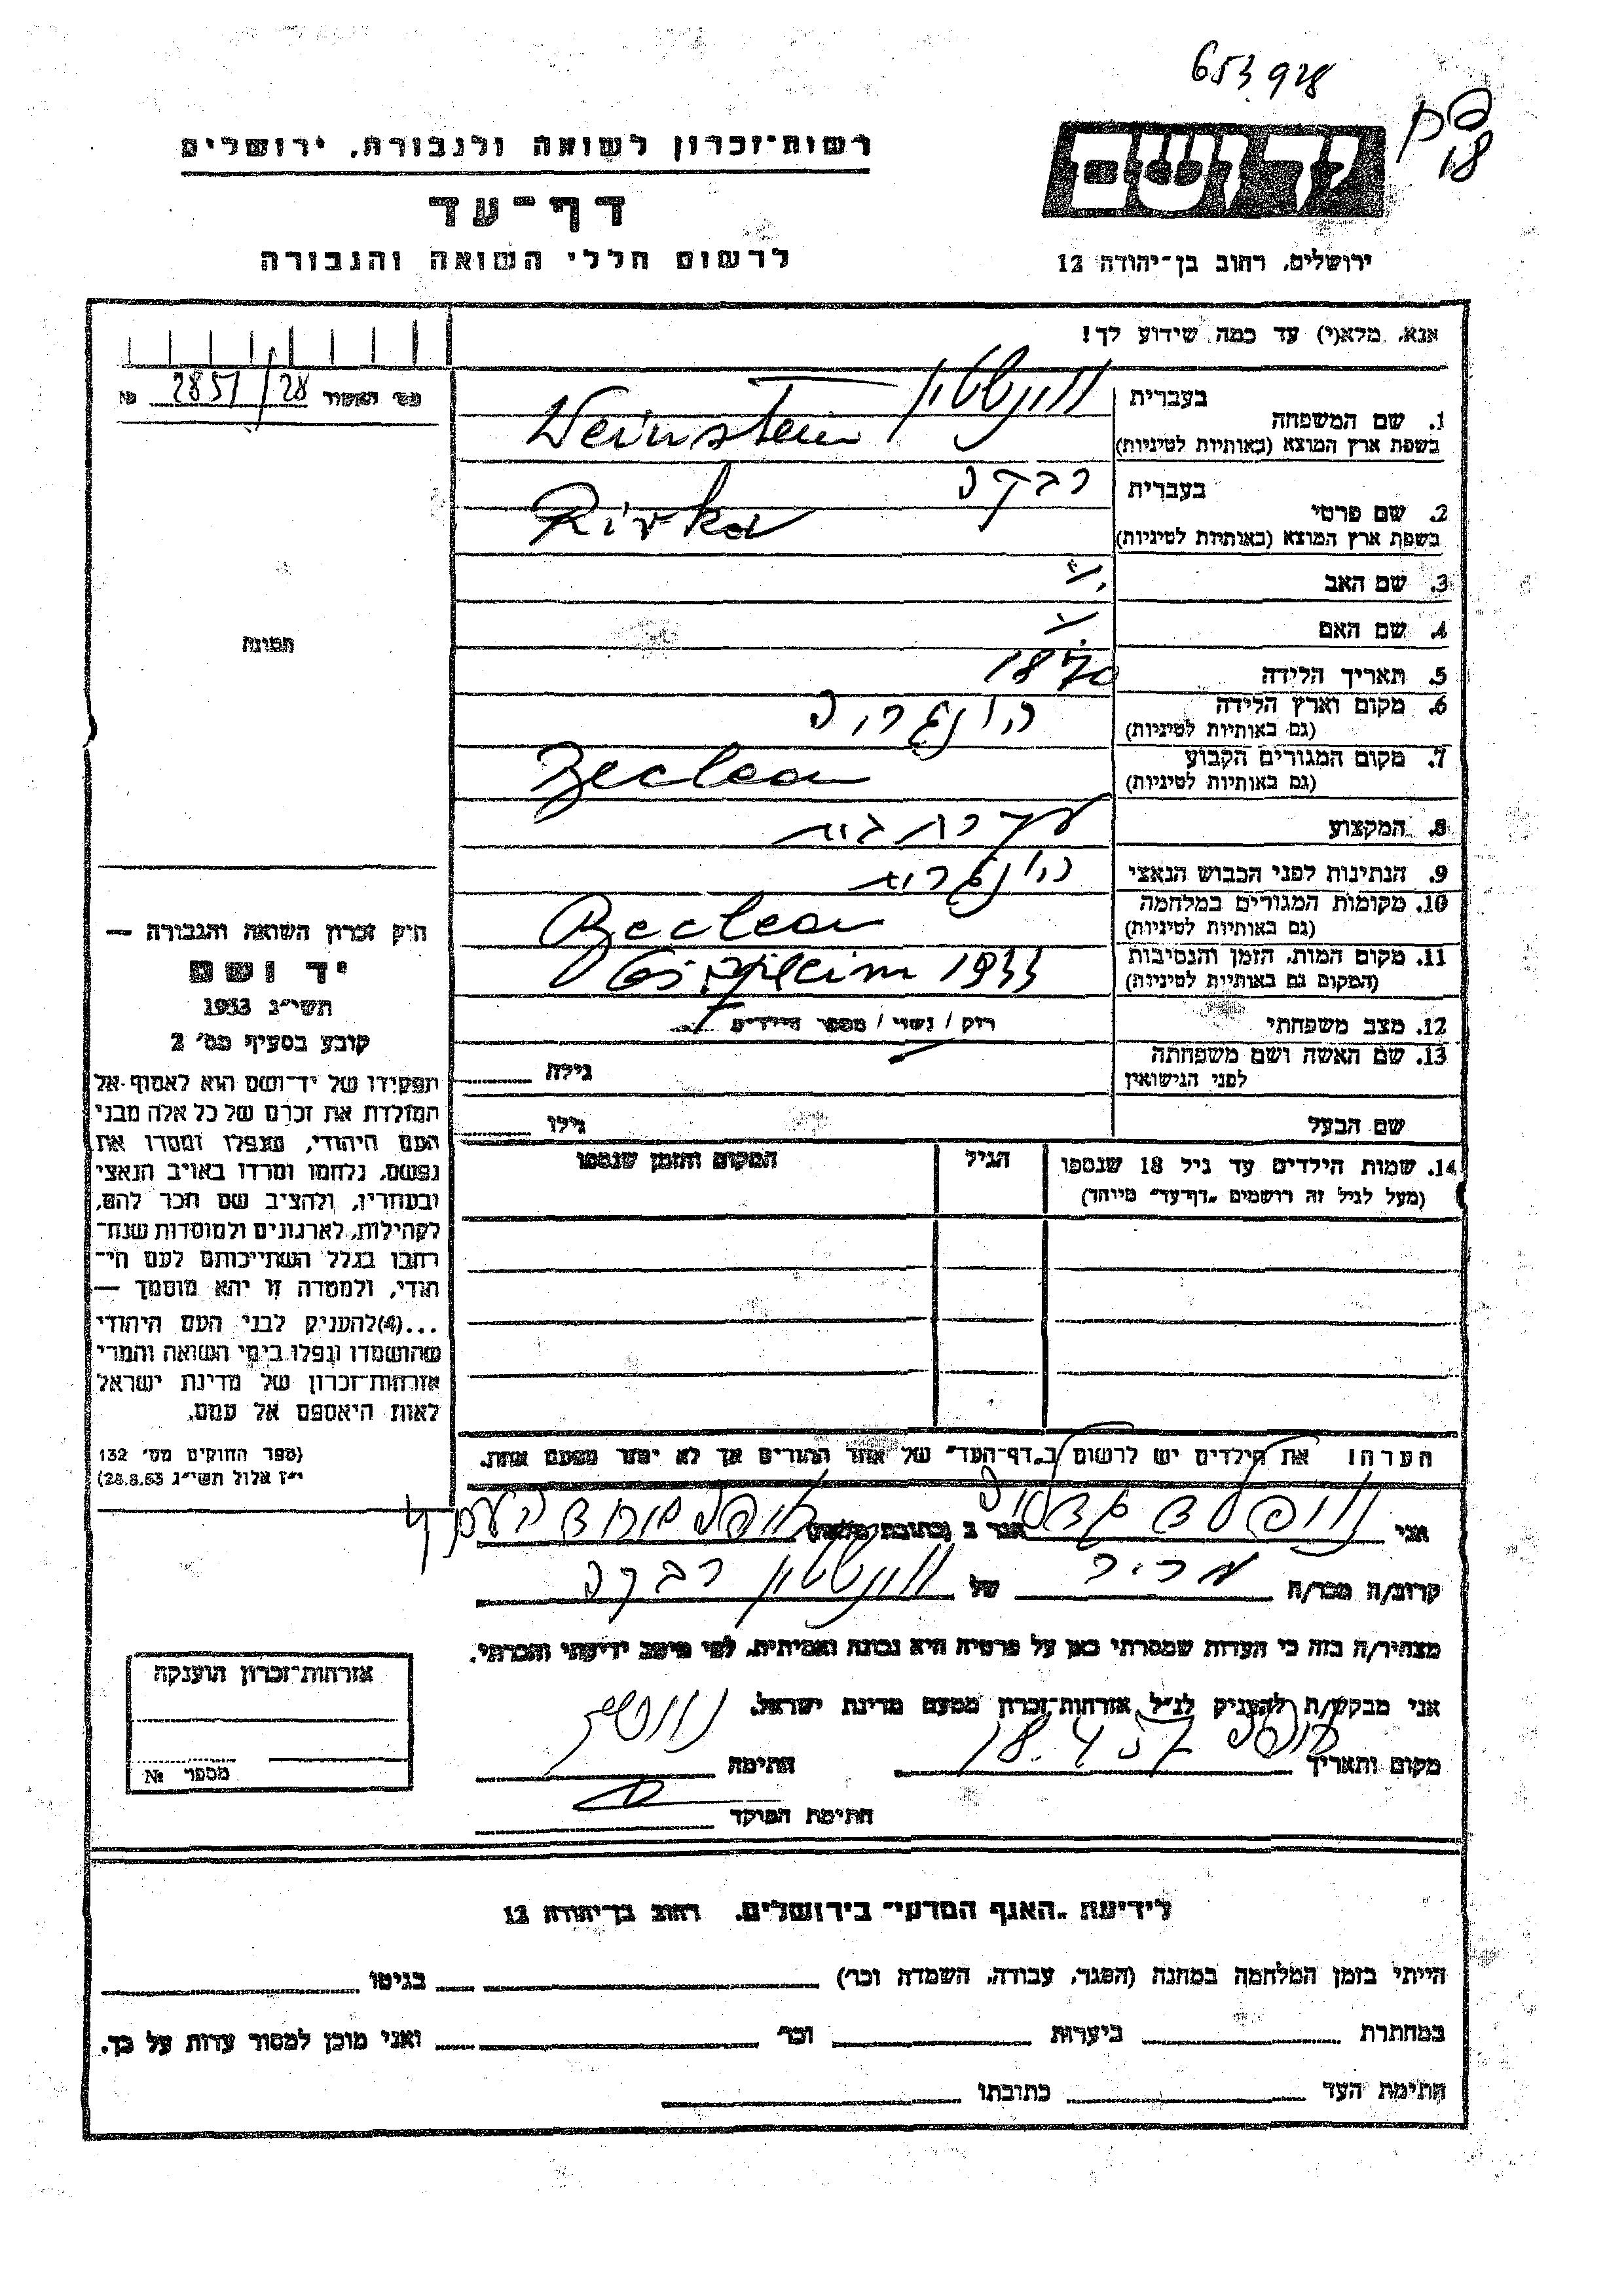 653928
רשות-זכרון לשואה ולגבורה, ירושלים
דף-עד
לרשום חללי השואה והגבורה
ירושלים, רחוב בן-יהודה 12
אנא, מלא(י) עד כמה שידוע לך!
2851/28
1. שם המשפחה
בעברית
וינשטין
בשפת ארץ המוצא (באותיות לטיניות)
Weinstein
2. שם פרטי
בעברית
רבקה
בשפת ארץ המוצא (באותיות לטיניות)
Rivka
3. שם האב
4. שם האם
5. תאריך הלידה 1870
6. מקום וארץ הלידה הונגריה
(גם באותיות לטיניות)
7. מקום המגורים הקבוע
(גם באותיות לטיניות)
Beclean
8. המקצוע עקרת בית
9. הנתינות לפני הכבוש הנאצי הונגרית
10. מקומות המגורים במלחמה
(גם באותיות לטיניות)
Beclean
11. מקום המות, הזמן והנסיבות
(המקום גם באותיות לטיניות)
12. מצב משפחתי רוק / נשוי / מספר הילדים
13. שם האשה ושם משפחתה
לפני הנישואין
גילה
שם הבעל
גילו
14. שמות הילדים עד גיל 18 שנספו
(מעל לגיל זה רושמים "דף-עד" מיוחד)
הגיל
המקום והזמן שנספו
הערה: את הילדים יש לרשום ב"דף-העד" של אחד ההורים אך לא יותר מפעם אחת.
תמונה
חוק זכרון השואה והגבורה —
יד ושם
תשי"ג 1953
קובע בסעיף מס' 2
תפקידו של יד-ושם הוא לאסוף אל
המולדת את זכרם של כל אלה מבני
העם היהודי, שנפלו ומסרו את
נפשם, נלחמו ומרדו באויב הנאצי
ובעוזריו, ולהציב שם וזכר להם,
לקהילות, לארגונים ולמוסדות שנח-
רבו בגלל השתייכותם לעם הי-
הודי, ולמטרה זו יהא מוסמך —
...(4) להעניק לבני העם היהודי
שהושמדו ונפלו בימי השואה והמרי
אזרחות-זכרון של מדינת ישראל
לאות היאספם אל עמם.
(ספר החוקים מס' 132
י"ז אלול תשי"ג 28.8.53)
אני
קרוב/ה מכר/ה של וינשטין רבקה
מצהיר/ה בזה כי העדות שמסרתי כאן על פרטיה היא נכונה ואמיתית, לפי מיטב ידיעתי והכרתי.
אני מבקש/ת להעניק לנ"ל אזרחות-זכרון מטעם מדינת ישראל.
מקום ותאריך 18.4.57 חתימה
חתימת הפוקד
אזרחות-זכרון הוענקה
מספר №
לידיעת "האגף המדעי" בירושלים, רחוב בן-יהודה 12
הייתי בזמן המלחמה במחנה (הסגר, עבודה, השמדה וכו') בגיטו
במחתרת ביערות וכו' ואני מוכן למסור עדות על כך.
חתימת העד כתובתו